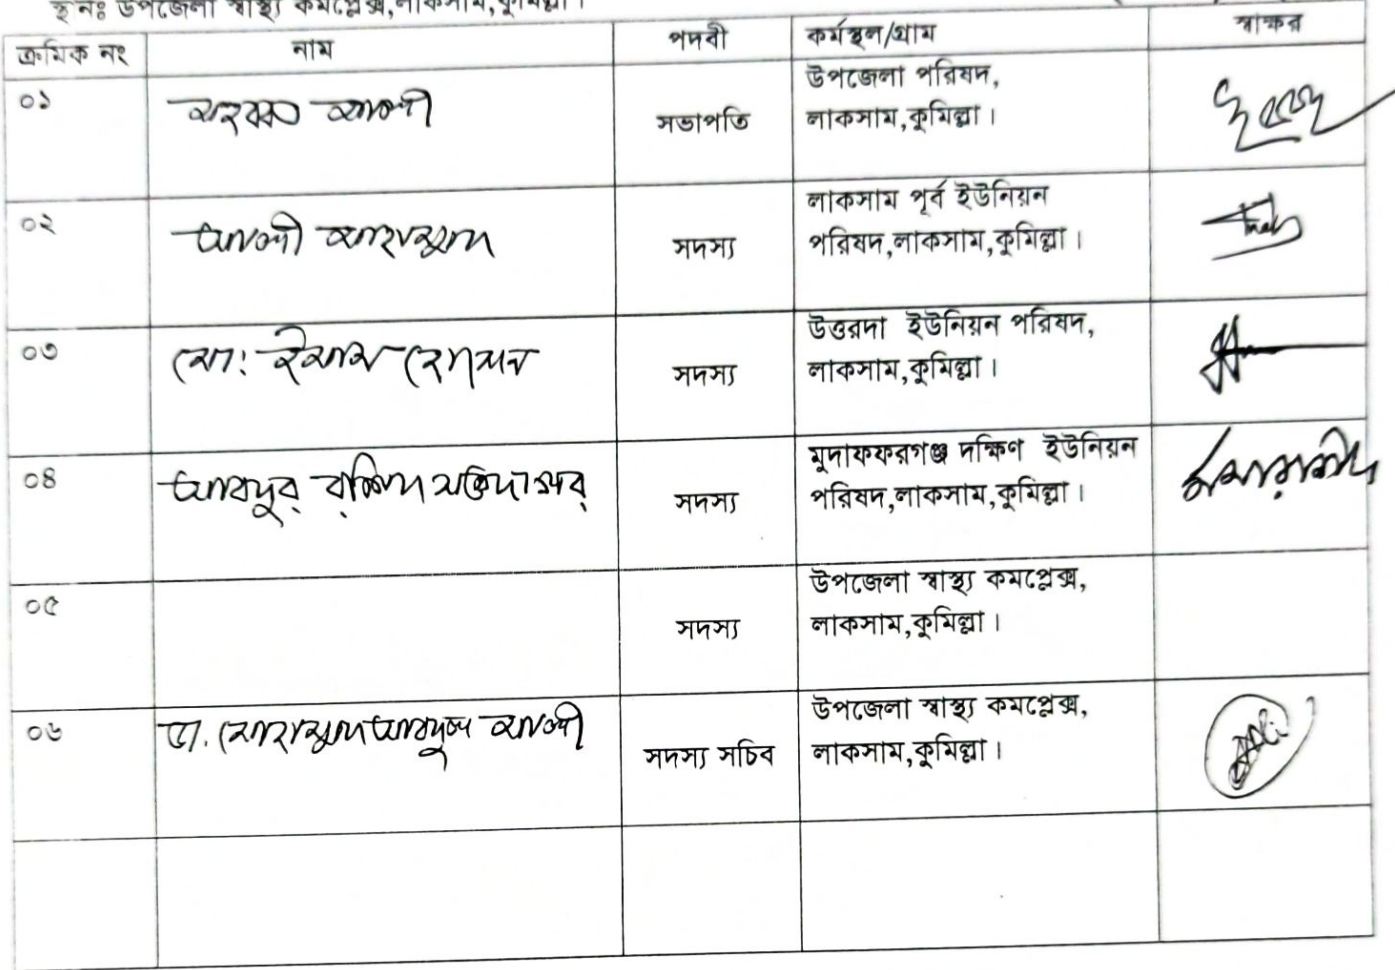 স্থনঃ উপজেলা স্বাস্থ্য কমপ্লেক্স,লাকসাম,কুমিল্লা।
ক্রমিক নং নাম পদবী কর্মস্থল/গ্রাম স্বাক্ষর
০১ মহব্বত আলী সভাপতি উপজেলা পরিষদ,
লাকসাম,কুমিল্লা।
০২ আলী আহাম্মদ সদস্য লাকসাম পূর্ব ইউনিয়ন
পরিষদ,লাকসাম,কুমিল্লা।
০৩ মো: ইমাম হোসেন সদস্য উত্তরদা ইউনিয়ন পরিষদ,
লাকসাম,কুমিল্লা।
০৪ আবদুর রশিদ সদস্য মুদাফফরগঞ্জ দক্ষিণ ইউনিয়ন
পরিষদ,লাকসাম,কুমিল্লা।
০৫ সদস্য উপজেলা স্বাস্থ্য কমপ্লেক্স,
লাকসাম,কুমিল্লা।
০৬ ডা. মোহাম্মদ আবদুল আলী সদস্য সচিব উপজেলা স্বাস্থ্য কমপ্লেক্স,
লাকসাম,কুমিল্লা।